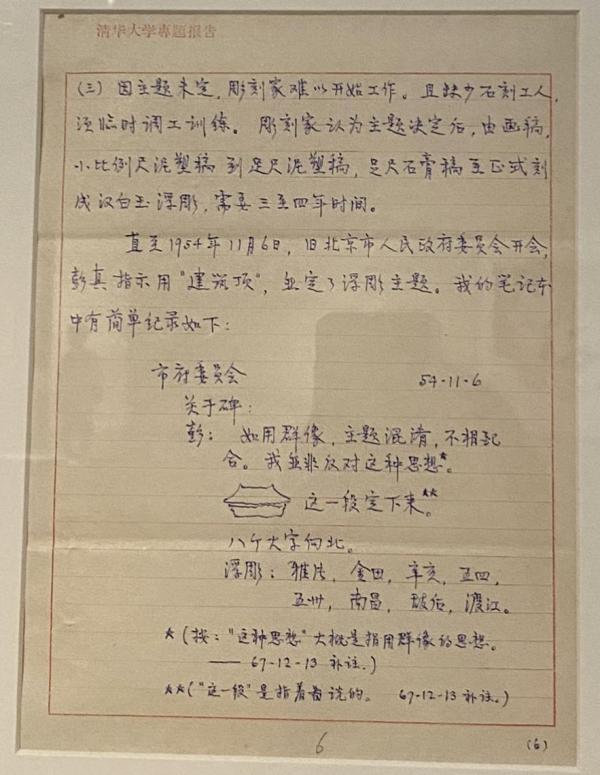 清华大学專題报告
(三) 因主题未定，彫刻家难以开始工作。且缺少石刻工人，
须临时调工训练。 彫刻家认为主题决定后，由画稿，
小比例尺泥塑稿到足尺泥塑稿，足尺石膏稿至正式刻
成汉白玉浮彫，需要三至四年时间。
直至1954年11月6日，旧北京市人民政府委员会开会，
彭真指示用"建筑顶"，並定了浮彫主题。我的笔记本
中有简单纪录如下：
市府委员会 54-11-6
关于碑：
彭： 如用群像，主题混淆，不相配
合。我並非反对这种思想*。
这一段定下来**。
八个大字向北。
浮彫：雅片，金田，辛亥，五四，
五卅，南昌，敌后，渡江。
*(按："这种思想"大概是指用群像的思想。
—— 67-12-13 补注.)
**("这一段"是指着图说的。 67-12-13 补注。)
6 (6)